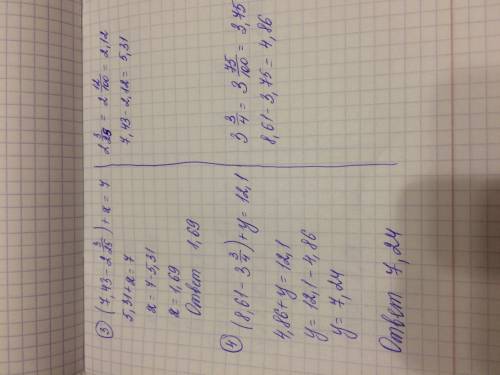 ③ (7,43 - 2 3/25) + x = 7
5,31 + x = 7
x = 7 - 5,31
x = 1,69
Ответ 1,69
2 3/25 = 2 12/100 = 2,12
7,43 - 2,12 = 5,31
④ (8,61 - 3 3/4) + y = 12,1
4,86 + y = 12,1
y = 12,1 - 4,86
y = 7,24
Ответ 7,24
3 3/4 = 3 75/100 = 3,75
8,61 - 3,75 = 4,86